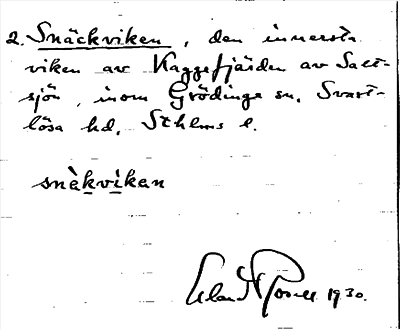 2. Snäckviken, den innersta
viken av Kaggefjärden av Salt-
sjön, inom Grödinge sn, Svart-
lösa hd, Sthlms l.
snèkvìken
1930.